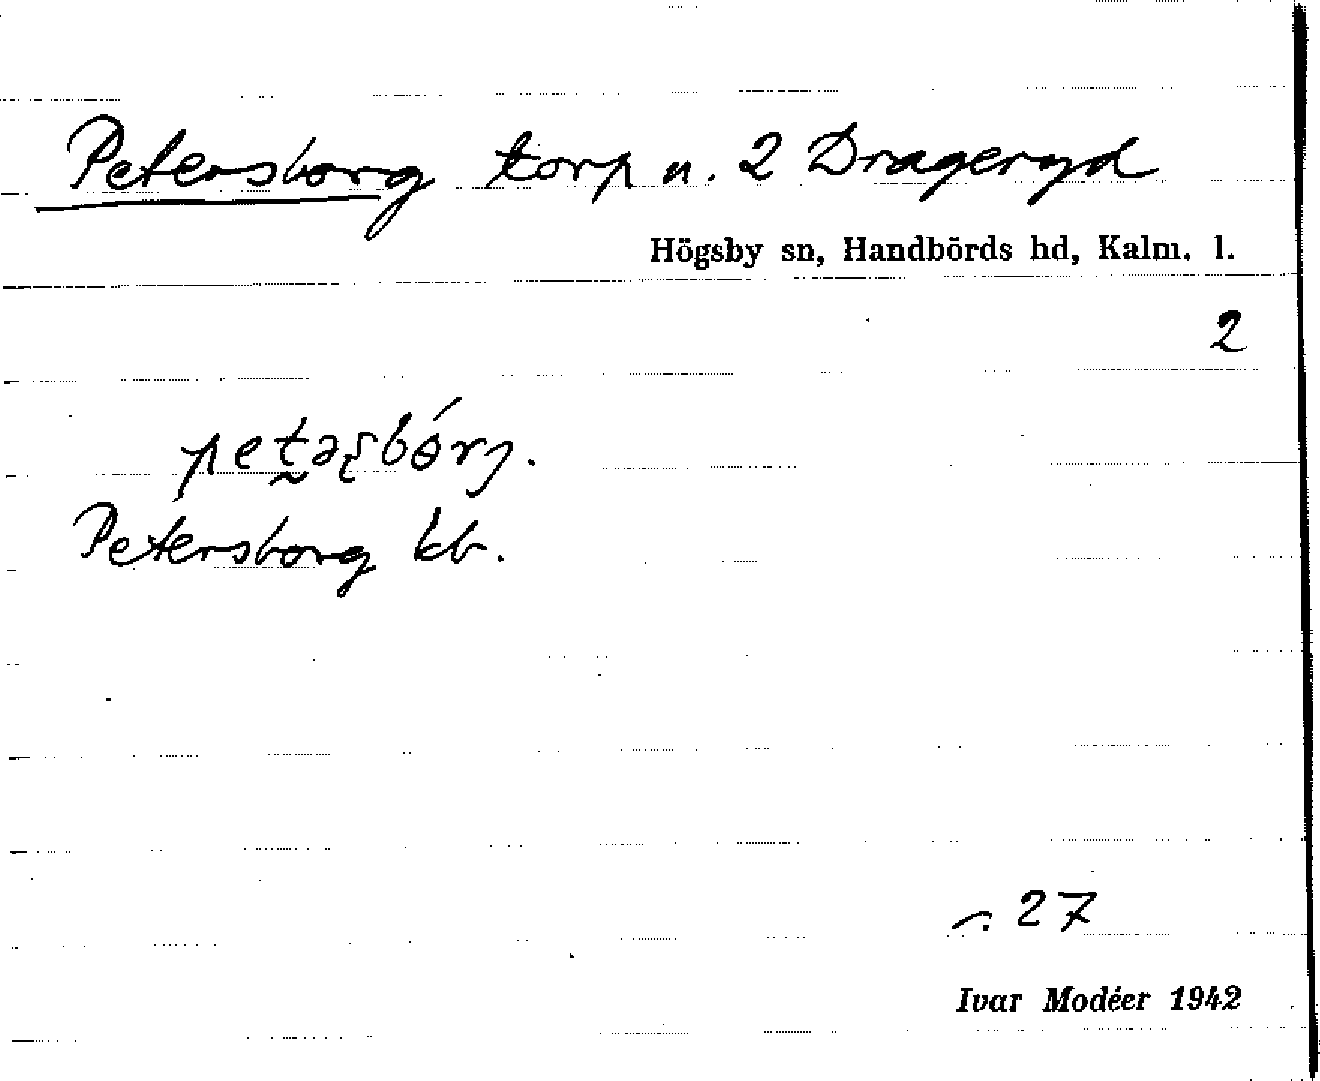 Petersborg torp u. 2 Drageryd
Högsby sn, Handbörds hd, Kalm. l.
2
Petersborg kb.
27
Ivar Modéer 1942